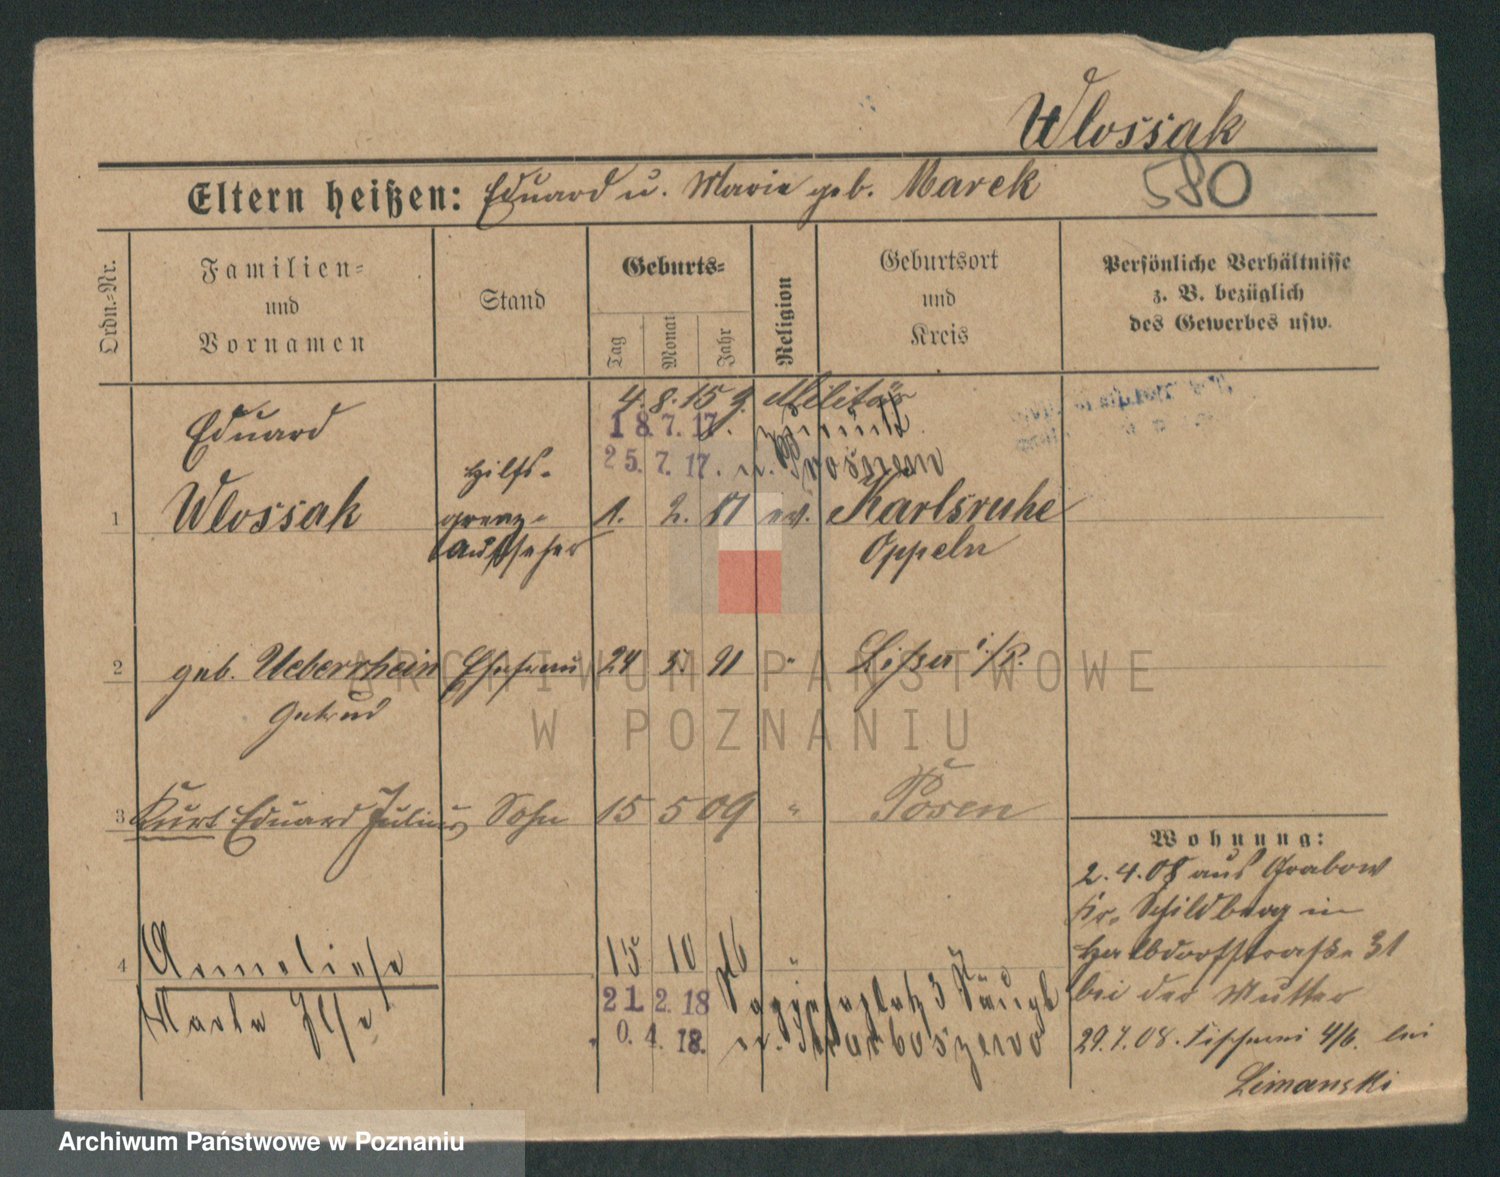 Wlossak
Eltern heißen: Eduard u. Marie geb. Marek
580
Ordn.-Nr.
Familien-
und
Vornamen
Stand
Geburts-
Tag
Monat
Jahr
Religion
Geburtsort
und
Kreis
Persönliche Verhältnisse
z. B. bezüglich
des Gewerbes usw.
4. 8. 15 g. Militär
18. 7. 17. zurück
25. 7. 17. n.
1
Eduard
Wlossak
Hilfs-
grenz-
aufseher
1. 2. 81 ev. Karlsruhe
Oppeln
2 geb. Ueberrhein Ehefrau 24 5. 91 " Lissa i/P.
3 Kurt Eduard Julius Sohn 15 5 09 " Posen
4 Anneliese 15 10 16 "
Marta Ilse
21. 2. 18
0. 4. 18.
Wohnung:
2. 4. 08 aus Grabow
Kr. Schildberg in
Halbdorfstraße 31
bei der Mutter
29. 7. 08. Fischerei 4/6. bei
Limanski
ARCHIWUM PAŃSTWOWE
W POZNANIU
Archiwum Państwowe w Poznaniu